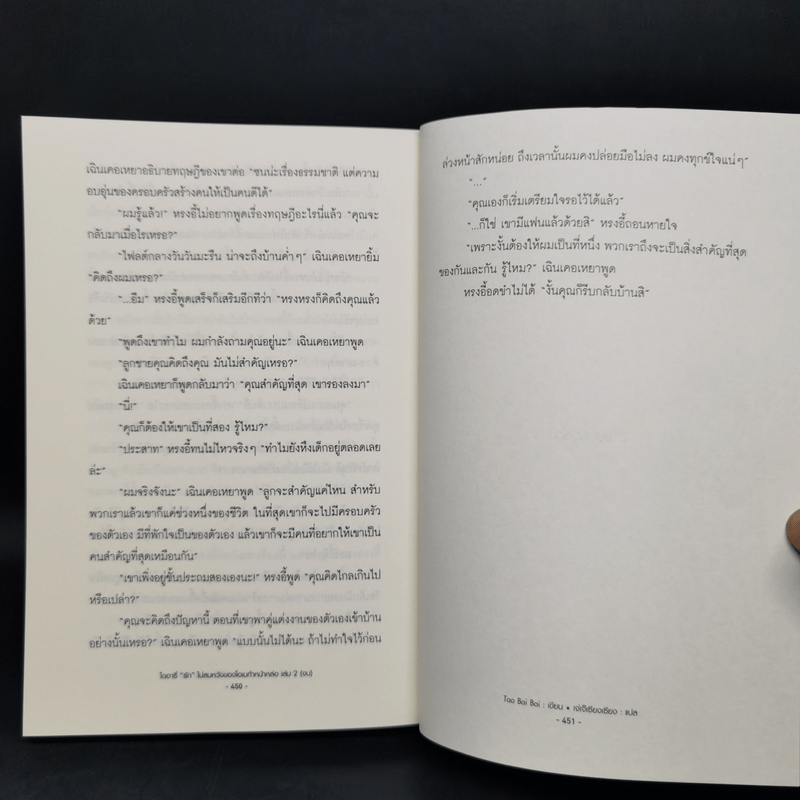 เฉินเคอเหยาอธิบายทฤษฎีของเขาต่อ “ซนน่ะเรื่องธรรมชาติ แต่ความ
อบอุ่นของครอบครัวสร้างคนให้เป็นคนดีได้”
“ผมรู้แล้ว!” หรงอี้ไม่อยากพูดเรื่องทฤษฎีอะไรนี่แล้ว “คุณจะ
กลับมาเมื่อไรเหรอ?”
“ไฟลต์กลางวันวันมะรืน น่าจะถึงบ้านค่ำๆ” เฉินเคอเหยายิ้ม
“คิดถึงผมเหรอ?”
“...อืม” หรงอี้พูดเสร็จก็เสริมอีกทีว่า “หรงหรงก็คิดถึงคุณแล้ว
ด้วย”
“พูดถึงเขาทำไม ผมกำลังถามคุณอยู่นะ” เฉินเคอเหยาพูด
“ลูกชายคุณคิดถึงคุณ มันไม่สำคัญเหรอ?”
เฉินเคอเหยาก็พูดกลับมาว่า “คุณสำคัญที่สุด เขารองลงมา”
“นี่!”
“คุณก็ต้องให้เขาเป็นที่สอง รู้ไหม?”
“ประสาท” หรงอี้ทนไม่ไหวจริงๆ “ทำไมยังหึงเด็กอยู่ตลอดเลย
ล่ะ”
“ผมจริงจังนะ” เฉินเคอเหยาพูด “ลูกจะสำคัญแค่ไหน สำหรับ
พวกเราแล้วเขาก็แค่ช่วงหนึ่งของชีวิต ในที่สุดเขาก็จะไปมีครอบครัว
ของตัวเอง มีที่พักใจเป็นของตัวเอง แล้วเขาก็จะมีคนที่อยากให้เขาเป็น
คนสำคัญที่สุดเหมือนกัน”
“เขาเพิ่งอยู่ชั้นประถมสองเองนะ!” หรงอี้พูด “คุณคิดไกลเกินไป
หรือเปล่า?”
“คุณจะคิดถึงปัญหานี้ ตอนที่เขาพาคู่แต่งงานของตัวเองเข้าบ้าน
อย่างนั้นเหรอ?” เฉินเคอเหยาพูด “แบบนั้นไม่ได้นะ ถ้าไม่ทำใจไว้ก่อน
ไดอารี่ “รัก” ไม่สมหวังของโอเมก้าหน้าหล่อ เล่ม 2 (จบ)
- 450 -
ล่วงหน้าสักหน่อย ถึงเวลานั้นผมคงปล่อยมือไม่ลง ผมคงทุกข์ใจแน่ๆ”
“...”
“คุณเองก็เริ่มเตรียมใจรอไว้ได้แล้ว”
“...ก็ใช่ เขามีแฟนแล้วด้วยสิ” หรงอี้ถอนหายใจ
“เพราะงั้นต้องให้ผมเป็นที่หนึ่ง พวกเราถึงจะเป็นสิ่งสำคัญที่สุด
ของกันและกัน รู้ไหม?” เฉินเคอเหยาพูด
หรงอี้อดขำไม่ได้ “งั้นคุณก็รีบกลับบ้านสิ”
Tao Bai Bai : เขียน • เจ่เจ๊เซียงเซียง : แปล
- 451 -